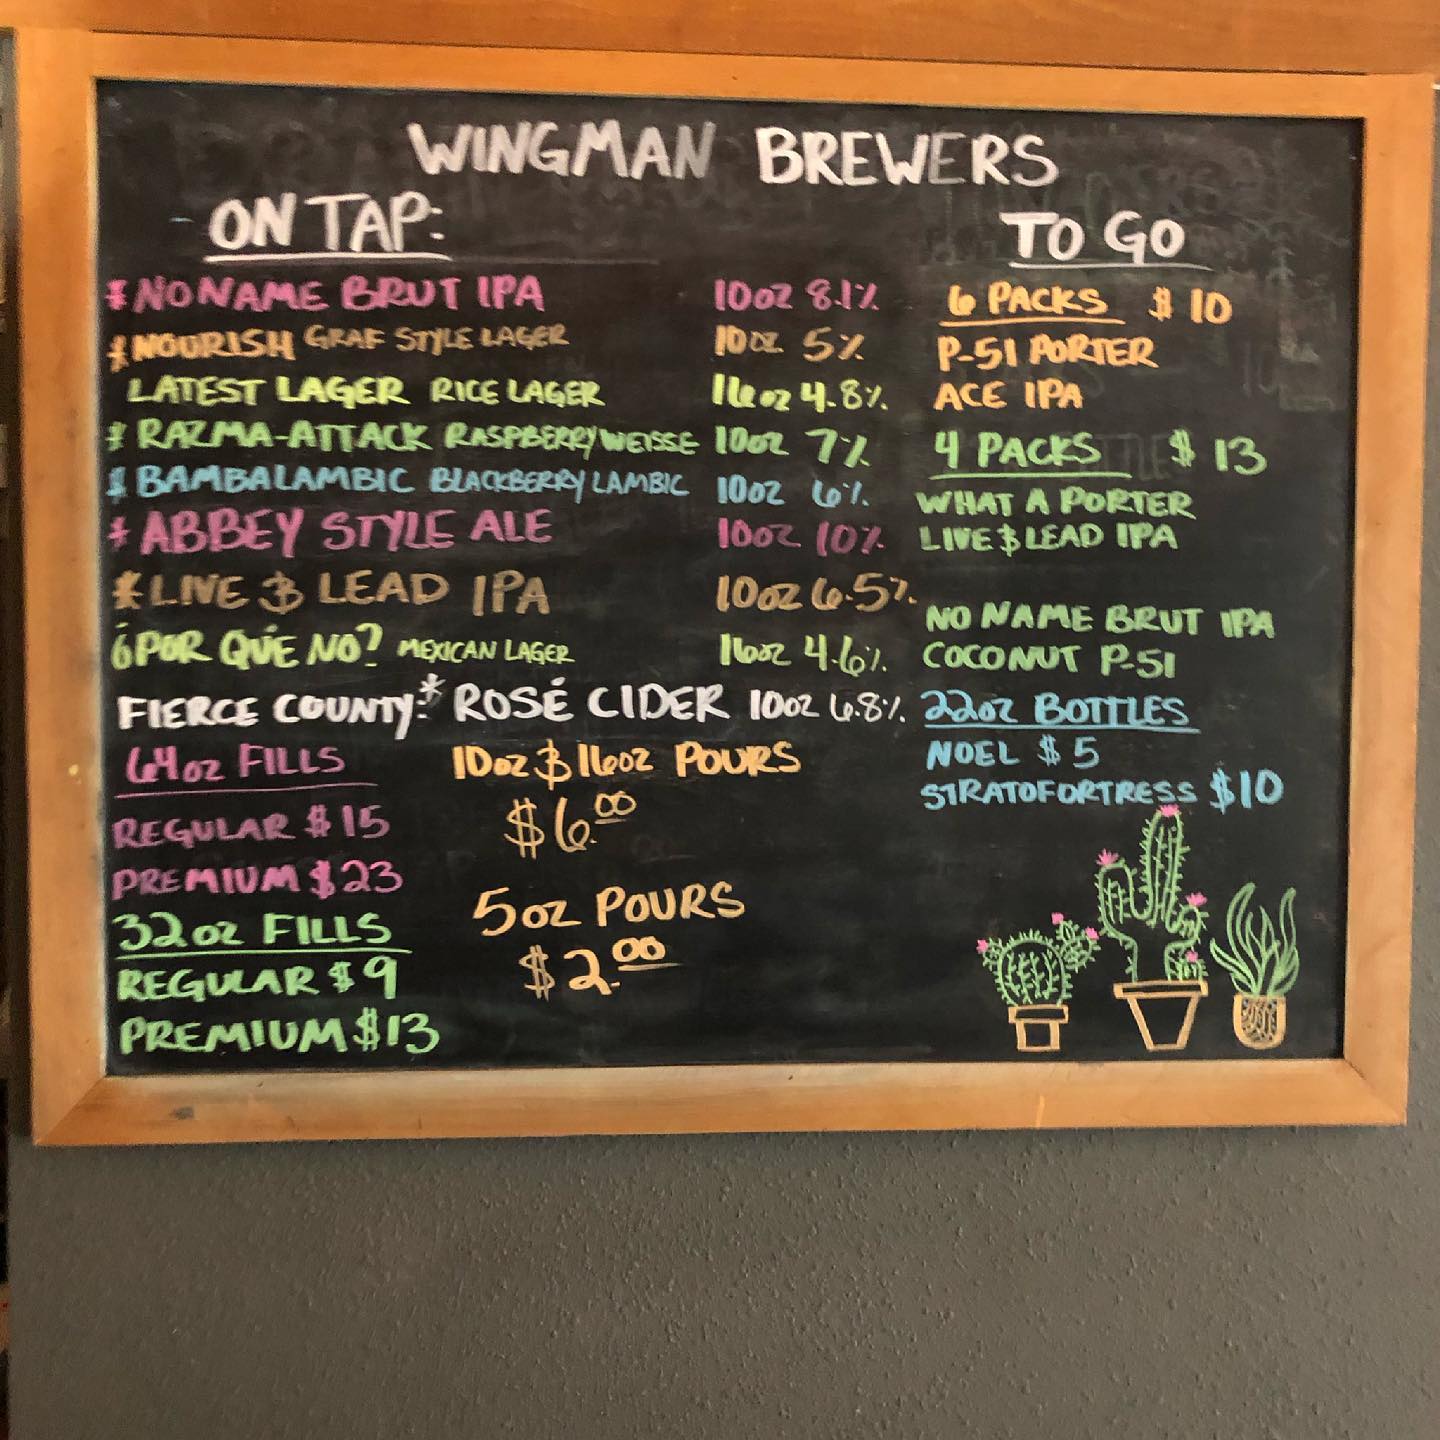 WINGMAN BREWERS
ON TAP:
* NO NAME BRUT IPA 10oz 8.1%
* NOURISH GRAF STYLE LAGER 10oz 5%
LATEST LAGER RICE LAGER 16oz 4.8%
* RAZMA-ATTACK RASPBERRY WEISSE 10oz 7%
* BAMBALAMBIC BLACKBERRY LAMBIC 10oz 6%
* ABBEY STYLE ALE 10oz 10%
* LIVE & LEAD IPA 10oz 6.5%
¿POR QUÉ NO? MEXICAN LAGER 16oz 4.6%
FIERCE COUNTY:* ROSÉ CIDER 10oz 6.8%
64oz FILLS
REGULAR $15
PREMIUM $23
32oz FILLS
REGULAR $9
PREMIUM $13
10oz & 16oz POURS
$6.00
5oz POURS
$2.00
TO GO
6 PACKS $10
P-51 PORTER
ACE IPA
4 PACKS $13
WHAT A PORTER
LIVE & LEAD IPA
NO NAME BRUT IPA
COCONUT P-51
22oz BOTTLES
NOEL $5
STRATOFORTRESS $10